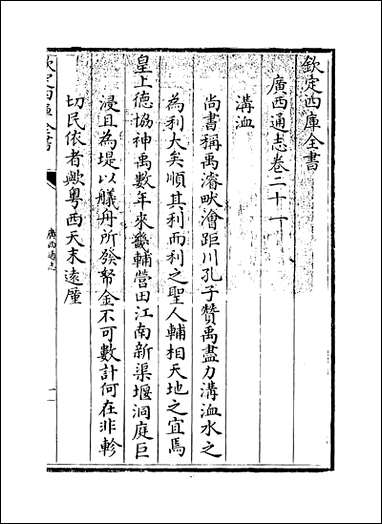 欽定四庫全書
廣西通志卷二十一
溝洫
尚書稱禹濬畎澮距川孔子贊禹盡力溝洫水之
為利大矣順其利而利之聖人輔相天地之宜焉
皇上德協神禹數年來畿輔營田江南新渠堰洞庭巨
浸且為堤以艤舟所發帑金不可數計何在非軫
切民依者歟粤西天末遠廑
欽定四庫全書
廣西通志
一